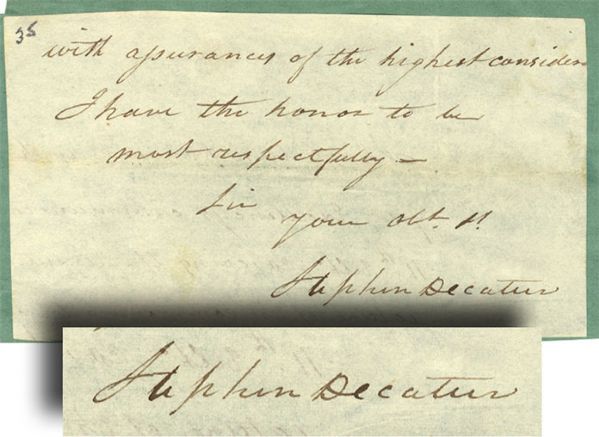 35
with assurances of the highest consider
I have the honor to be
most respectfully —
Sir
your Obt. St.
Stephen Decatur
Stephen Decatur